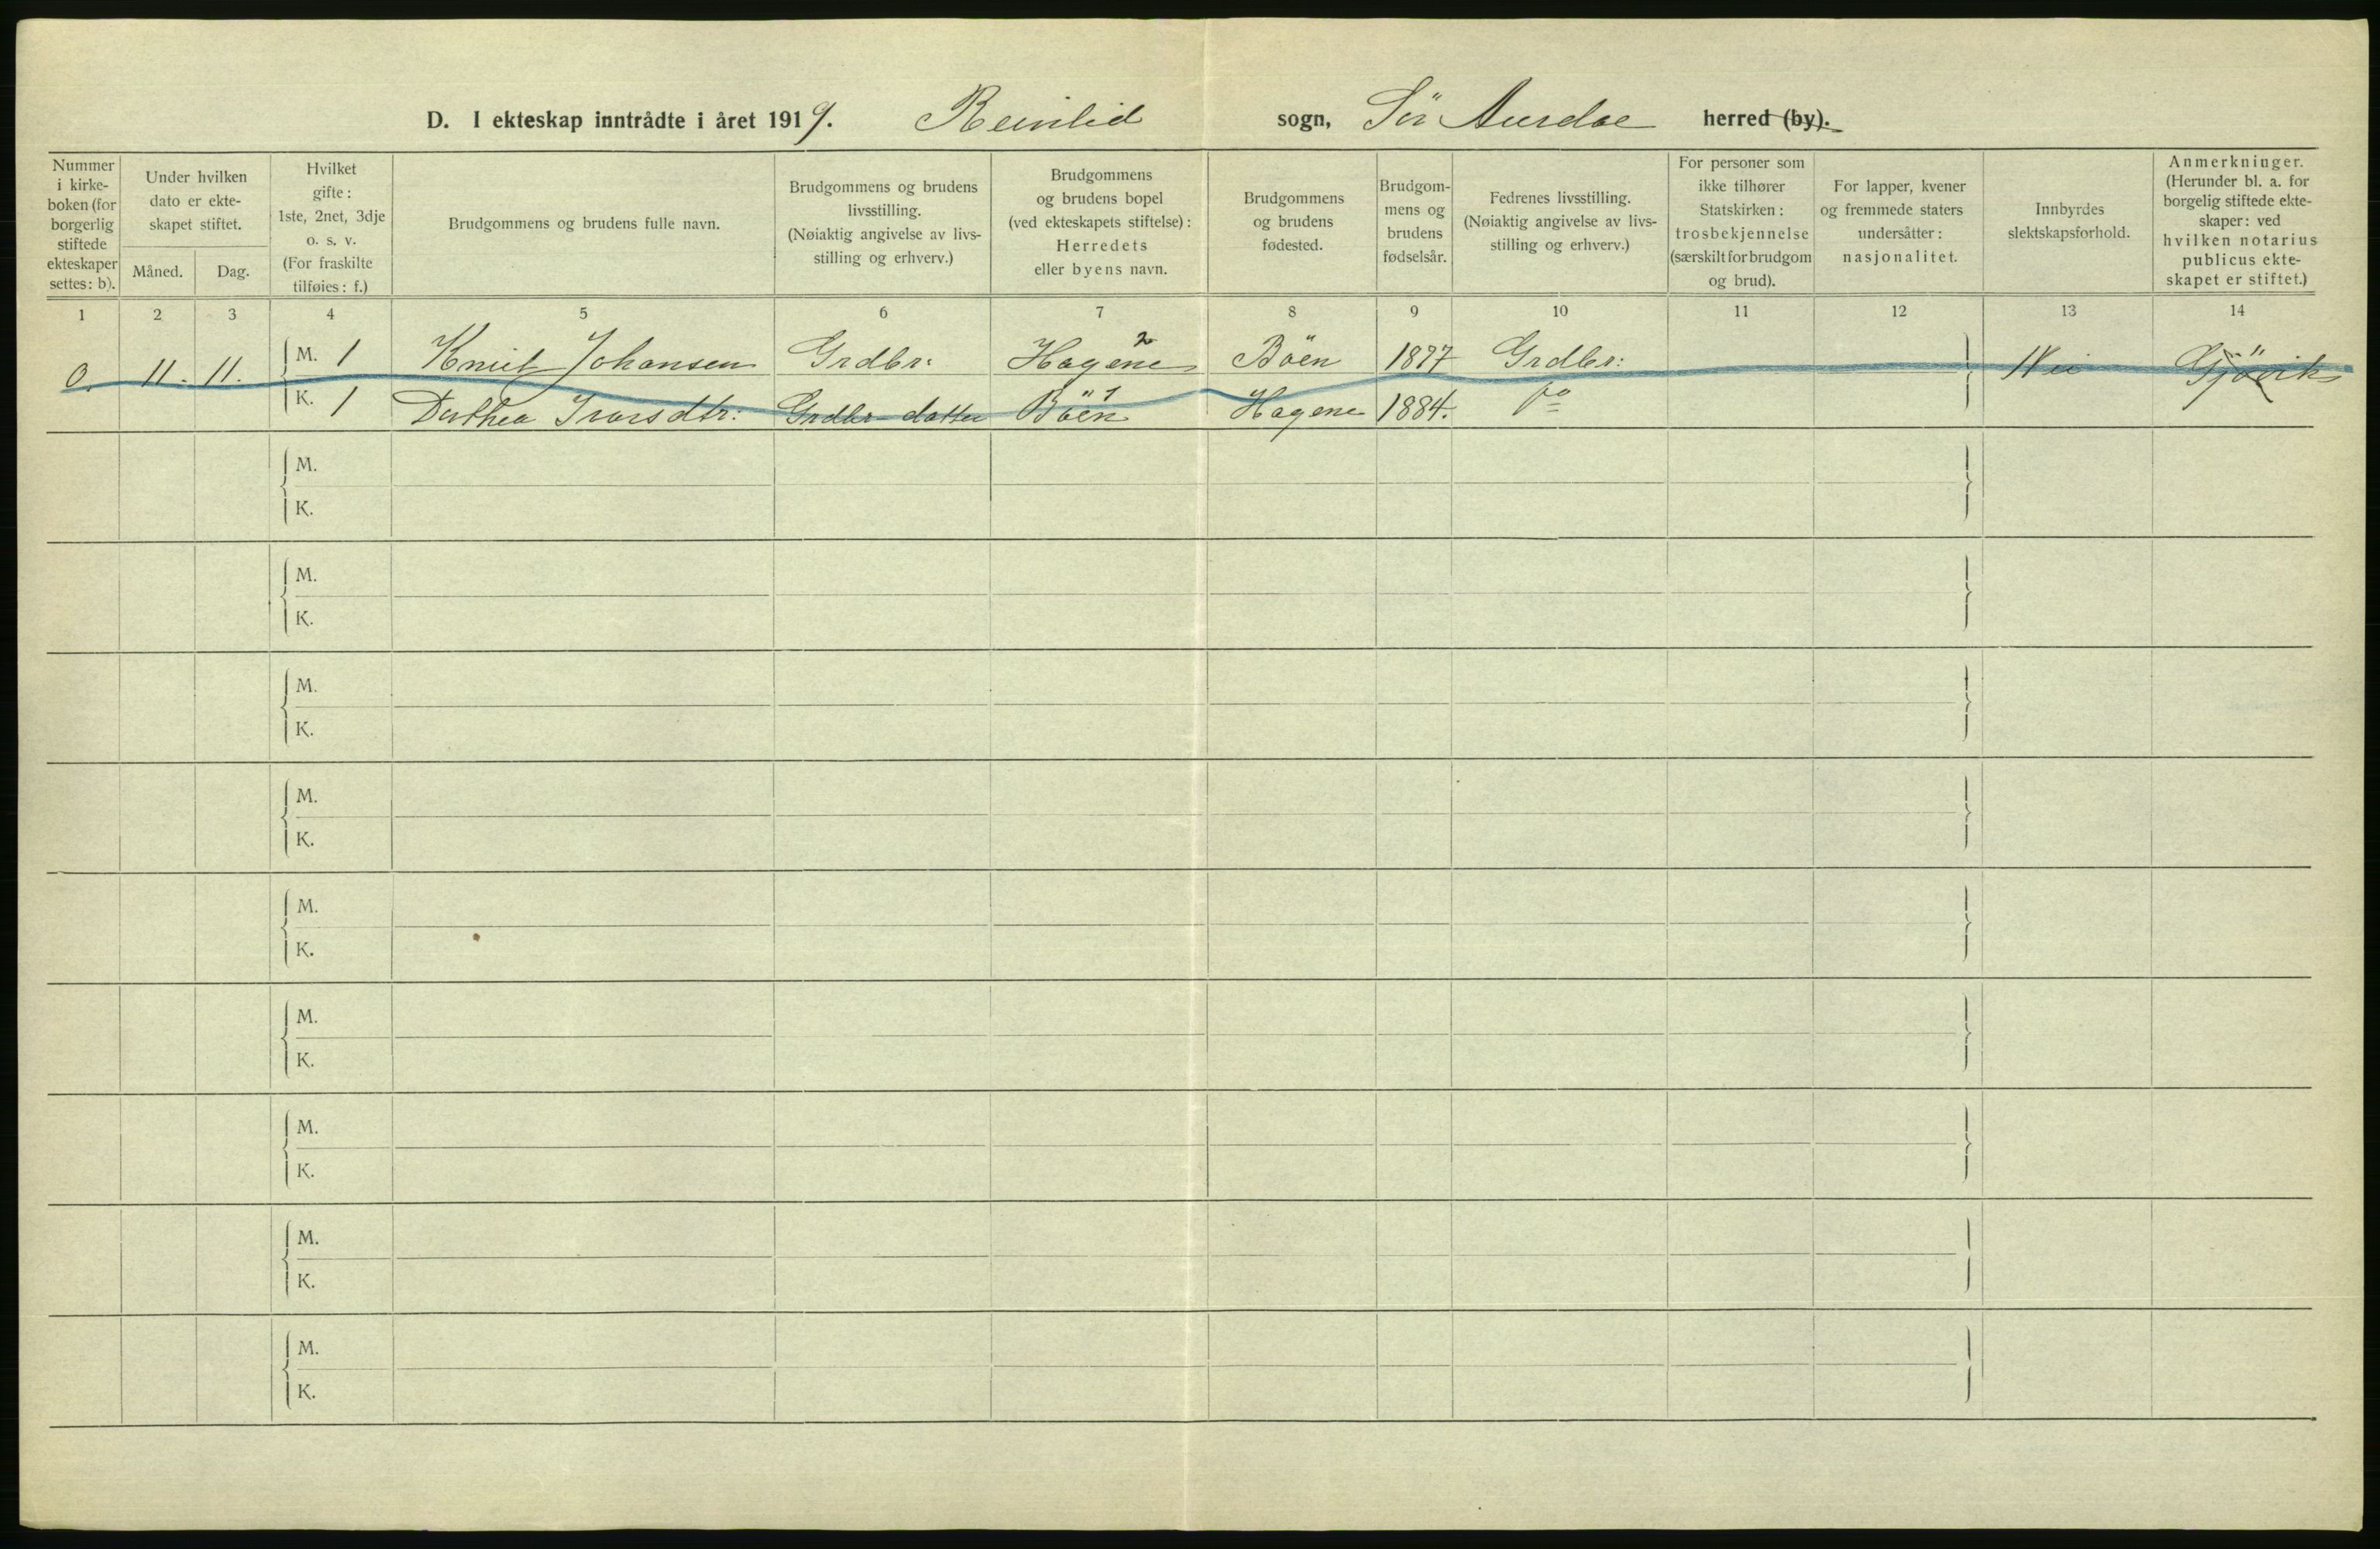 D. I ekteskap inntrådte i året 1919. Reinlid sogn, Sör Aurdal herred (by).
Nummer i kirkeboken (for borgerlig stiftede ekteskaper settes: b).
Under hvilken dato er ekteskapet stiftet.
Måned. Dag.
Hvilket gifte: 1ste, 2net, 3dje o. s. v. (For fraskilte tilføies: f.)
Brudgommens og brudens fulle navn.
Brudgommens og brudens livsstilling. (Nøiaktig angivelse av livsstilling og erhverv.)
Brudgommens og brudens bopel (ved ekteskapets stiftelse): Herredets eller byens navn.
Brudgommens og brudens fødested.
Brudgommens og brudens fødselsår.
Fedrenes livsstilling. (Nøiaktig angivelse av livsstilling og erhverv.)
For personer som ikke tilhører Statskirken: trosbekjennelse (særskilt for brudgom og brud).
For lapper, kvener og fremmede staters undersåtter: nasjonalitet.
Innbyrdes slektskapsforhold.
Anmerkninger. (Herunder bl. a. for borgelig stiftede ekteskaper: ved hvilken notarius publicus ekteskapet er stiftet.)
1 2 3 4 5 6 7 8 9 10 11 12 13 14
0. 11. 11. M. 1 Knut Johansen Grdbr. Hagene 2 Böen 1877 Grdbr: Nei Gjövik
K. 1 Dorthea Ivarsdtr: Grdbr datter Böen 1 Hagene 1884. do
M.
K.
M.
K.
M.
K.
M.
K.
M.
K.
M.
K.
M.
K.
M.
K.
M.
K.